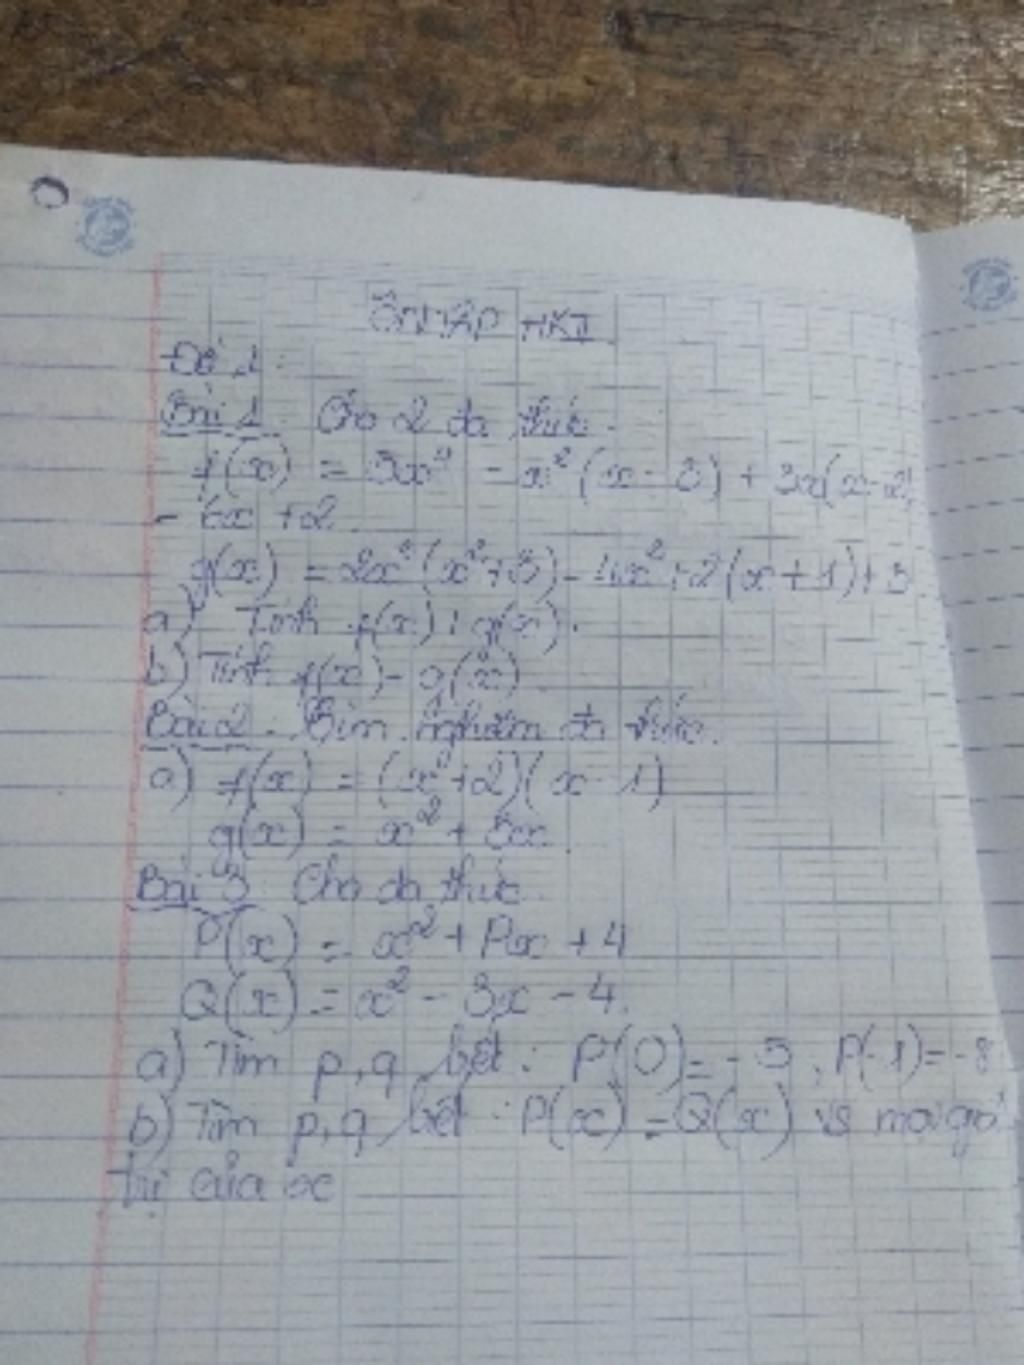 ÔN TẬP HKII
Đề 1:
Bài 1. Cho 2 đa thức.
f(x) = 3x⁴ - x²(x - 3) + 3x(x - 2)
- 6x + 2
g(x) = 2x²(x²+3) - 4x² + 2(x+1) + 3
a) Tính f(x) + g(x).
b) Tính f(x) - g(x)
Bài 2. nghiệm đa thức.
a) f(x) = (x²+2)(x - 1)
g(x) = x² + 3x
Bài 3 Cho đa thức.
P(x) = x² + Px + 4
Q(x) = x² - 3x - 4.
a) Tìm p,q biết: P(0) = -5, P(-1) = -8
b) Tìm p,q biết: P(x) = Q(x) mọi giá
trị của x